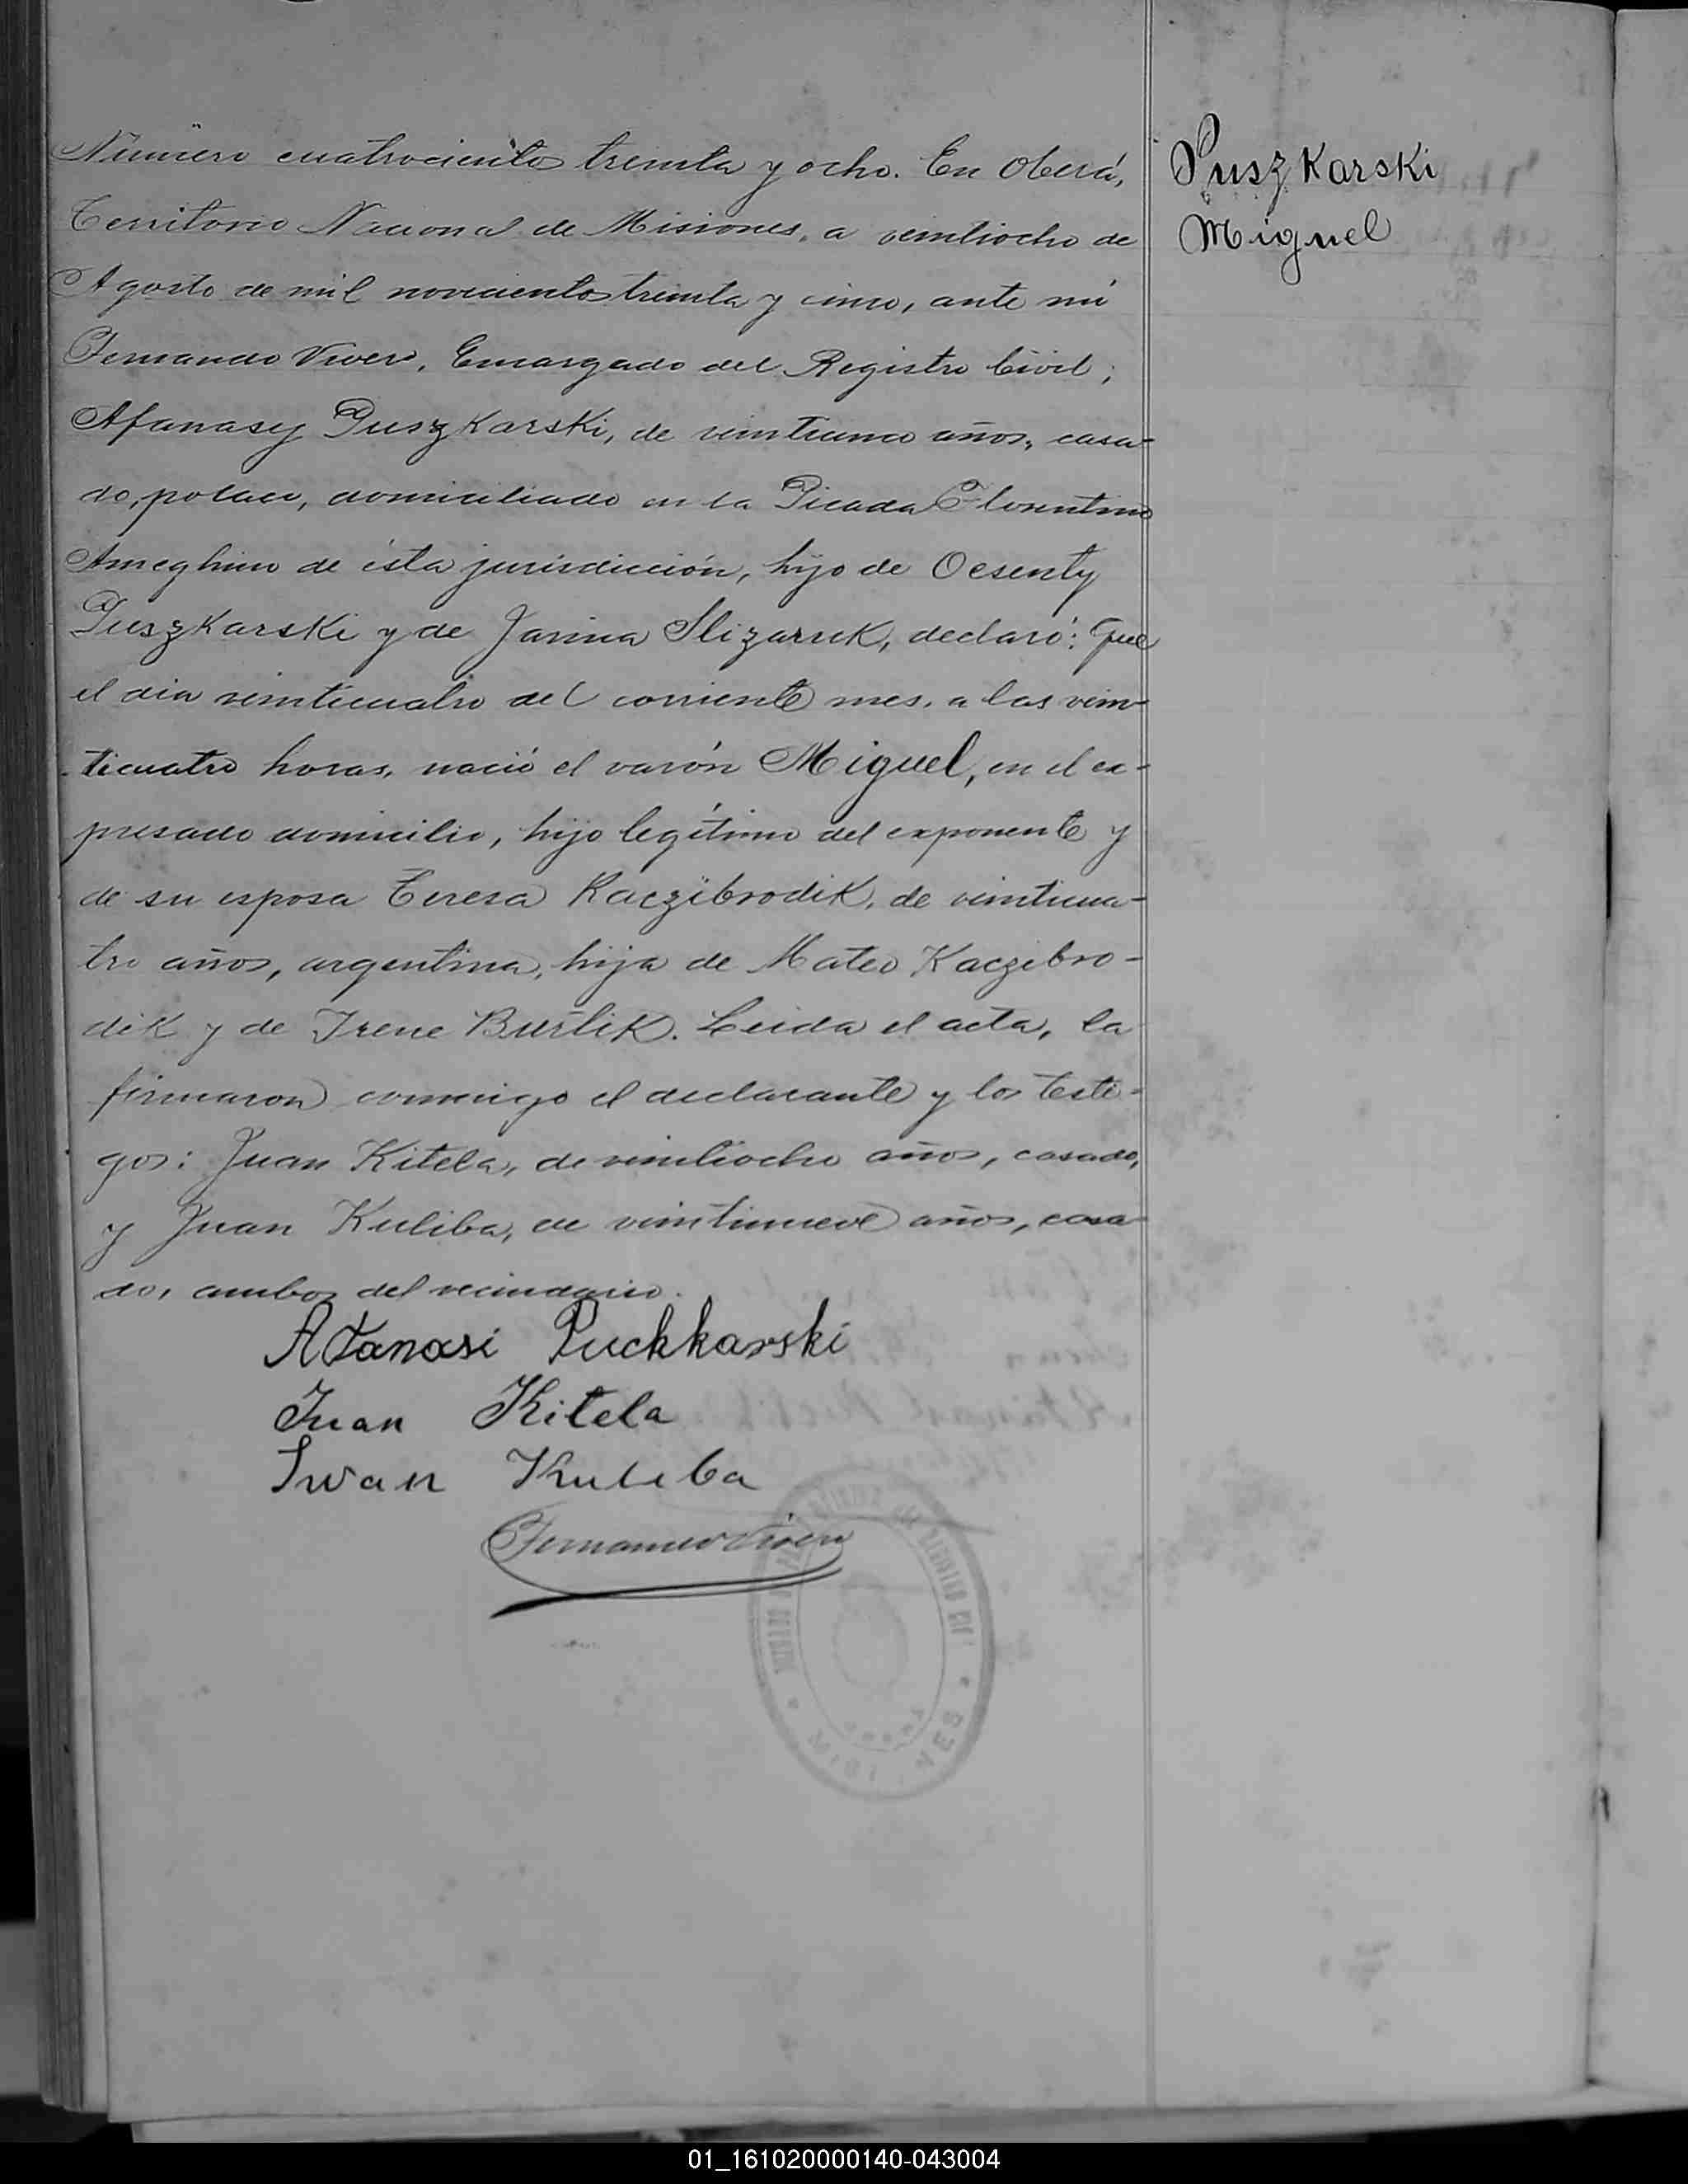 Número cuatrocientos treinta y ocho. En Oberá,
Territorio Nacional de Misiones, a veintiocho de
Agosto de mil novecientos treinta y cinco, ante mi
Fernando Vivero, Encargado del Registro Civil;
Afanasy Puszkarski, de veinticinco años, casa-
do, polaco, domiciliado en la Picada Florentino
Ameghino de ésta jurisdicción, hijo de Oesenty
Puszkarski y de Jarina Slizaruk, declaró: Que
el dia veinticuatro del corriente mes, a las vein-
ticuatro horas, nació el varón Miguel, en el ex-
presado domicilio, hijo legítimo del exponente y
de su esposa Teresa Kaczibrodik, de veinticua-
tro años, argentina, hija de Mateo Kaczibro-
dik y de Irene Burlik. Leida el acta, la
firmaron conmigo el declarante y los testi-
gos: Juan Kitela, de veintiocho años, casado,
y Juan Kuliba, de veintinueve años, casa-
do, ambos del vecindario.
Atanasi Puchkarski
Juan Kitela
Iwan Kuliba
Fernando Vivero
MISIONES
Puszkarski
Miguel
01_161020000140-043004